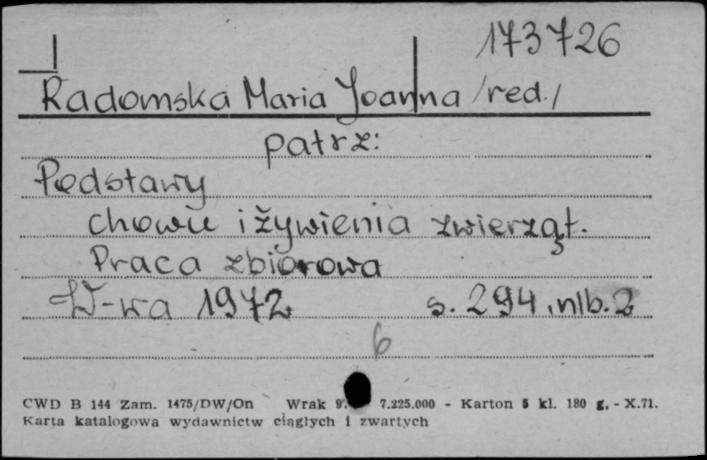 173726
Radomska Maria Joanna /red./
patrz:
Podstawy
chowu i żywienia zwierząt.
Praca zbiorowa
W-wa 1972 s. 294, nlb. 2
6
CWD B 144 Zam. 1475/DW/On Wrak 7.225.000 - Karton 5 kl. 180 g, - X.71.
Karta katalogowa wydawnictw ciągłych i zwartych